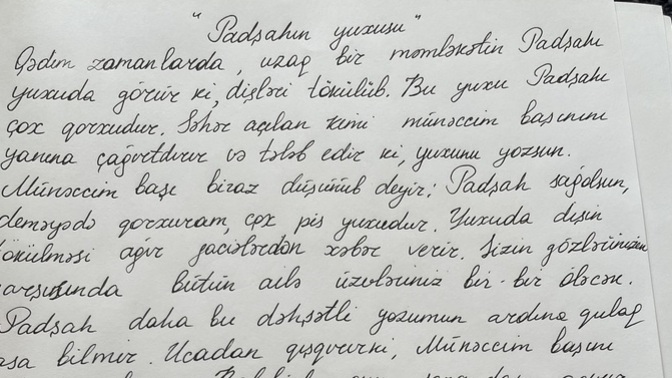 "Padşahın yuxusu"
Qədim zamanlarda, uzaq bir məmləkətin Padşahı
yuxuda görür ki, dişləri tökülüb. Bu yuxu Padşahı
çox qorxudur. Səhər açılan kimi münəccim başısını
yanına çağırtdırır və tələb edir ki, yuxunu yozsun.
Münəccim başı biraz düşünüb deyir: Padşah sağolsun,
deməyədə qorxuram, çox pis yuxudur. Yuxuda dişin
tökülməsi ağır faciələrdən xəbər verir. Sizin gözlərinizin
qarşısında bütün ailə üzvləriniz bir-bir öləcək.
Padşah daha bu dəhşətli yozumun ardına qulaq
asa bilmir. Ucadan qışqırırki, Münəccim başını